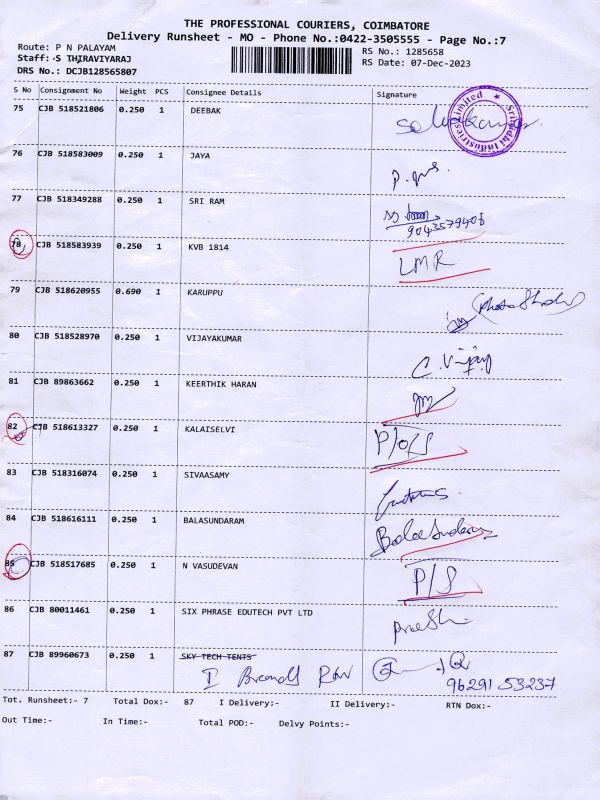 THE PROFESSIONAL COURIERS, COIMBATORE
Delivery Runsheet - MO - Phone No.:0422-3505555 - Page No.:7
Route: P N PALAYAM RS No.: 1285658
Staff: S THIRAVIYARAJ RS Date: 07-Dec-2023
DRS No.: DCJB128565807
S No Consignment No Weight PCS Consignee Details Signature
75 CJB 518521806 0.250 1 DEEBAK
Industries Limited
76 CJB 518583009 0.250 1 JAYA
77 CJB 518349288 0.250 1 SRI RAM
9043579408
78 CJB 518583939 0.250 1 KVB 1814 LMR
79 CJB 518620955 0.690 1 KARUPPU
80 CJB 518528970 0.250 1 VIJAYAKUMAR C. Vijay
81 CJB 89863662 0.250 1 KEERTHIK HARAN
82 CJB 518613327 0.250 1 KALAISELVI
83 CJB 518316074 0.250 1 SIVAASAMY
84 CJB 518616111 0.250 1 BALASUNDARAM
85 CJB 518517685 0.250 1 N VASUDEVAN P/S
86 CJB 80011461 0.250 1 SIX PHRASE EDUTECH PVT LTD
87 CJB 89960673 0.250 1 SKY TECH TENTS
96291 53237
Tot. Runsheet:- 7 Total Dox:- 87 I Delivery:- II Delivery:- RTN Dox:-
Out Time:- In Time:- Total POD:- Delvy Points:-